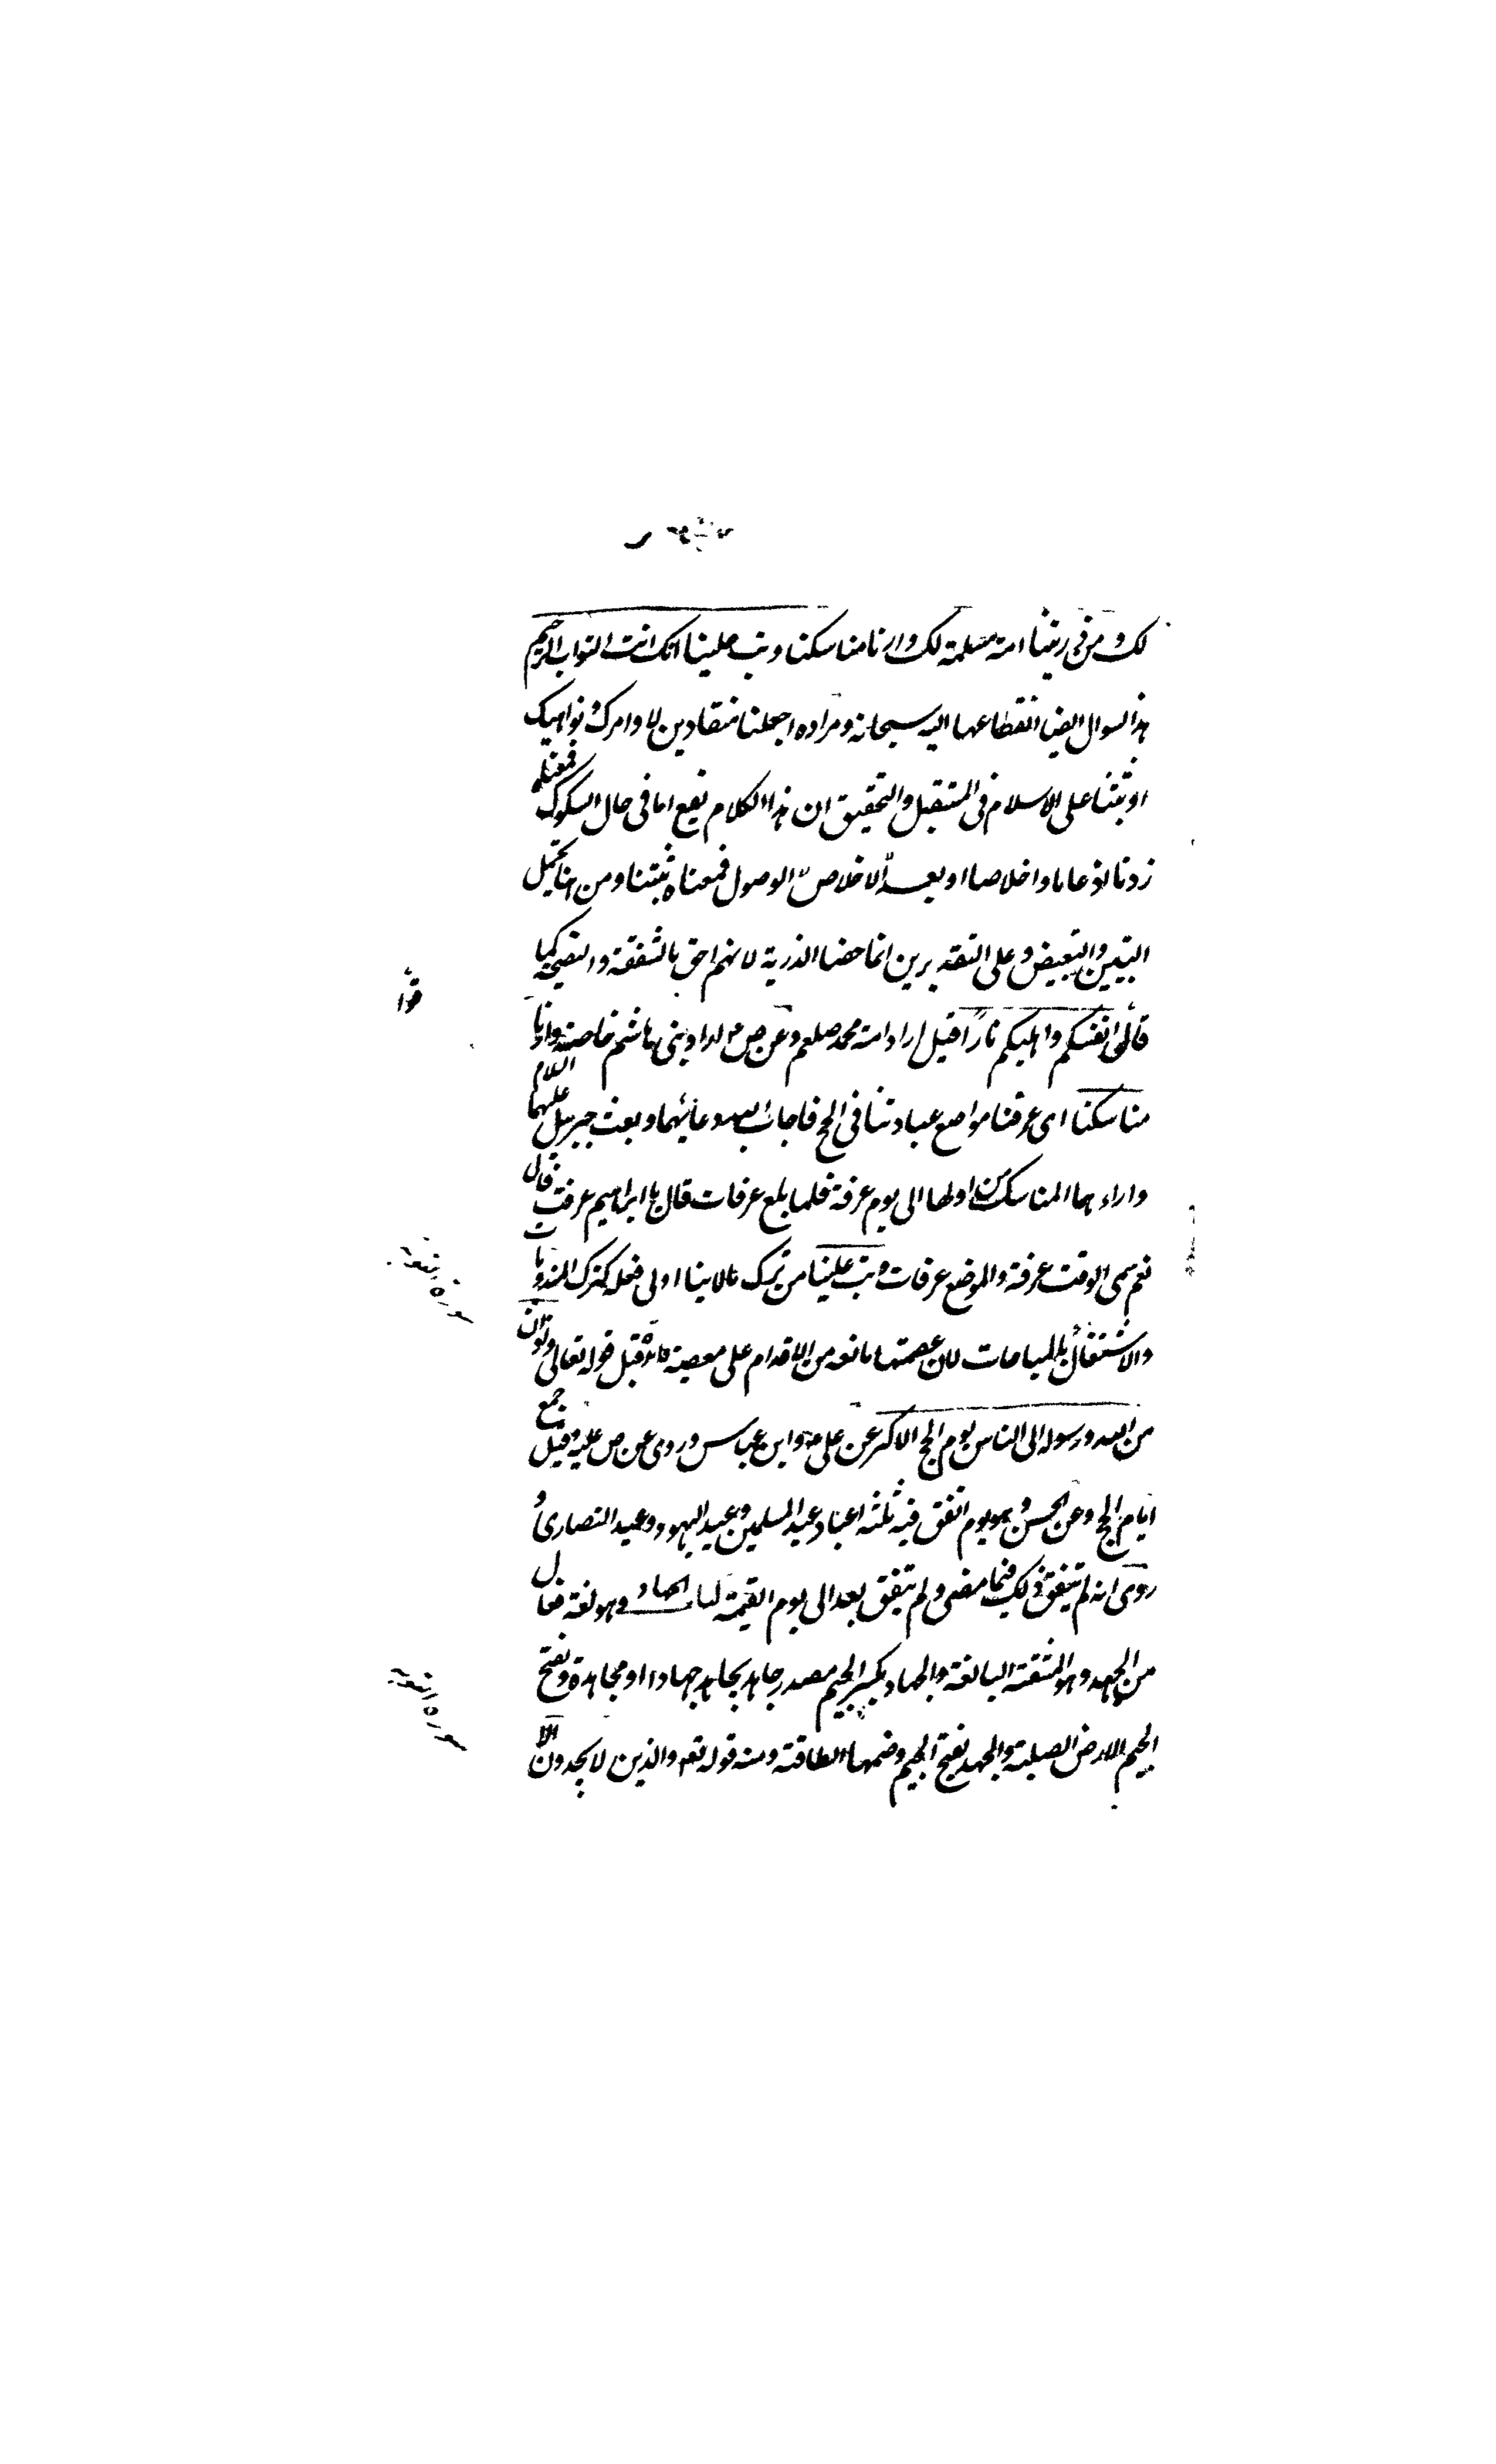 لك ومن ذريتنا امة مسلمة لك وارنا مناسكنا وتب علينا انك انت التواب الرحيم
هذا السوال ايضا انقطاعهما اليه سبحانه ومراده اجعلنا منقادين لاوامرك ونواهيك
او ثبتنا على الاسلام فى المستقبل والتحقيق ان هذا الكلام يقع اما فى حال السكوك فمعناه
زدنا اذعانا واخلاصا او بعد الاخلاص الوصول فمعناه ثبتنا ومن هنا يحتمل
التبيين والتبعيض وعلى التقديرين انما خصا الذرية لانهم احق بالشفقة والنصيحة كما
قال قوا انفسكم واهليكم نارا قيل اراد امة محمد صلعم وعن ص ع اراد بنى هاشم خاصة وارنا
مناسكنا اى عرفنا مواضع عبادتنا فى الحج فاجاب الله دعائهما وبعث جبرئيل عليهما السلام
واراءهما المناسك من اولها الى يوم عرفة فلما بلغ عرفات قال يا ابراهيم عرفت قال
نعم سمى الوقت عرفة والموضع عرفات وتب علينا من ترك ما لاينا اولى فعله كترك المندوبات
والاشتغال بالمباحات لان عصمتهما مانعه من الاقدام على معصية قبل قوله تعالى واذان
من الله ورسوله الى الناس يوم الحج الاكبر عن على ع وابن عباس وروى عن ص عليه وقيل جمع
ايام الحج وعن الحسن هو يوم اتفق فيه ثلثه اعياد عيد المسلمين وعيد اليهود وعيد النصارى و
روى انه لم يتفق ذلك فيما مضى ولم يتفق بعد الى يوم القيمة كتاب الجهاد وهو لغة فعال
من الجهد وهو المشقة البالغة والجهاد بكسر الجيم مصدر جاهد يجاهد جهادا او مجاهدة وبفتح
الجيم الارض الصلبة والجهد بفتح الجيم وضمها الطاقة ومنه قوله تعه والذين لا يجدون الا